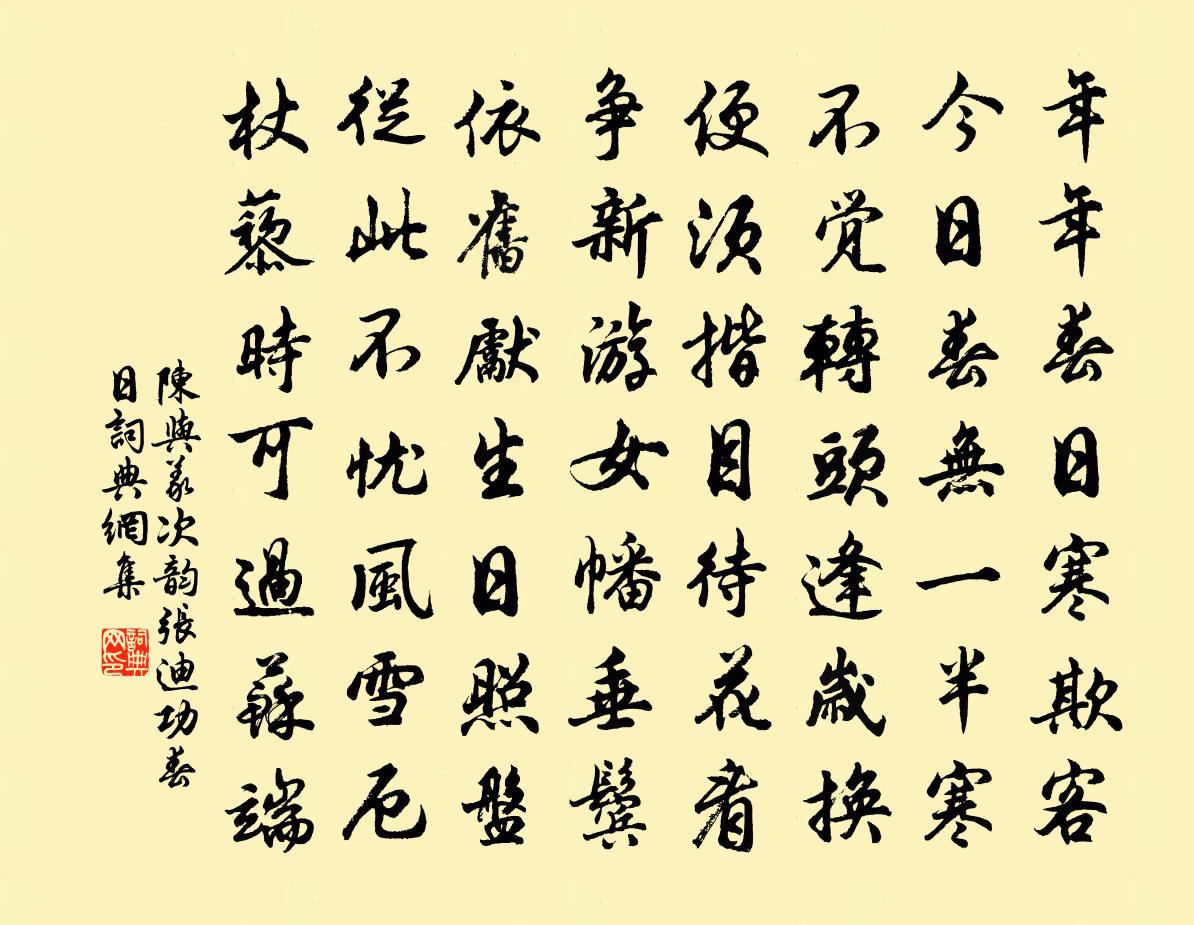 年年春日寒欺客
今日春無一半寒
不覚轉頭逢歲換
便須揩目待花看
争新游女幡垂鬢
依舊獻生日照盤
從此不忧風雪厄
杖藜時可過蘇端
陳與義次韵張迪功春
日詞典網集
詞典
网印